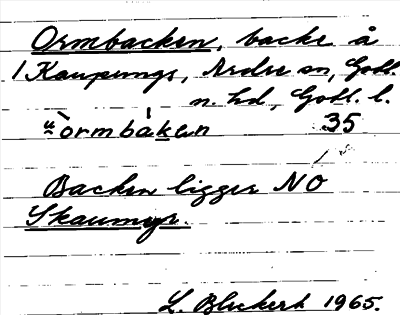 Ormbacken, backe å
1 Kaupungs, Ardre sn, Gotl.
n. hd, Gotl. l.
ormbàkan 35
Backen ligger NO
Skaumyr.
1965.